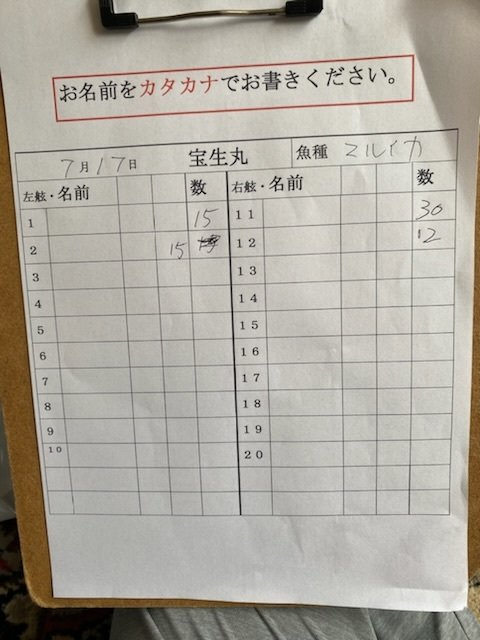 お名前をカタカナでお書きください。
7月17日 宝生丸 魚種 マルイカ
左舷・名前 数 右舷・名前 数
1 15 11 30
2 15 12 12
3 13
4 14
5 15
6 16
7 17
8 18
9 19
10 20